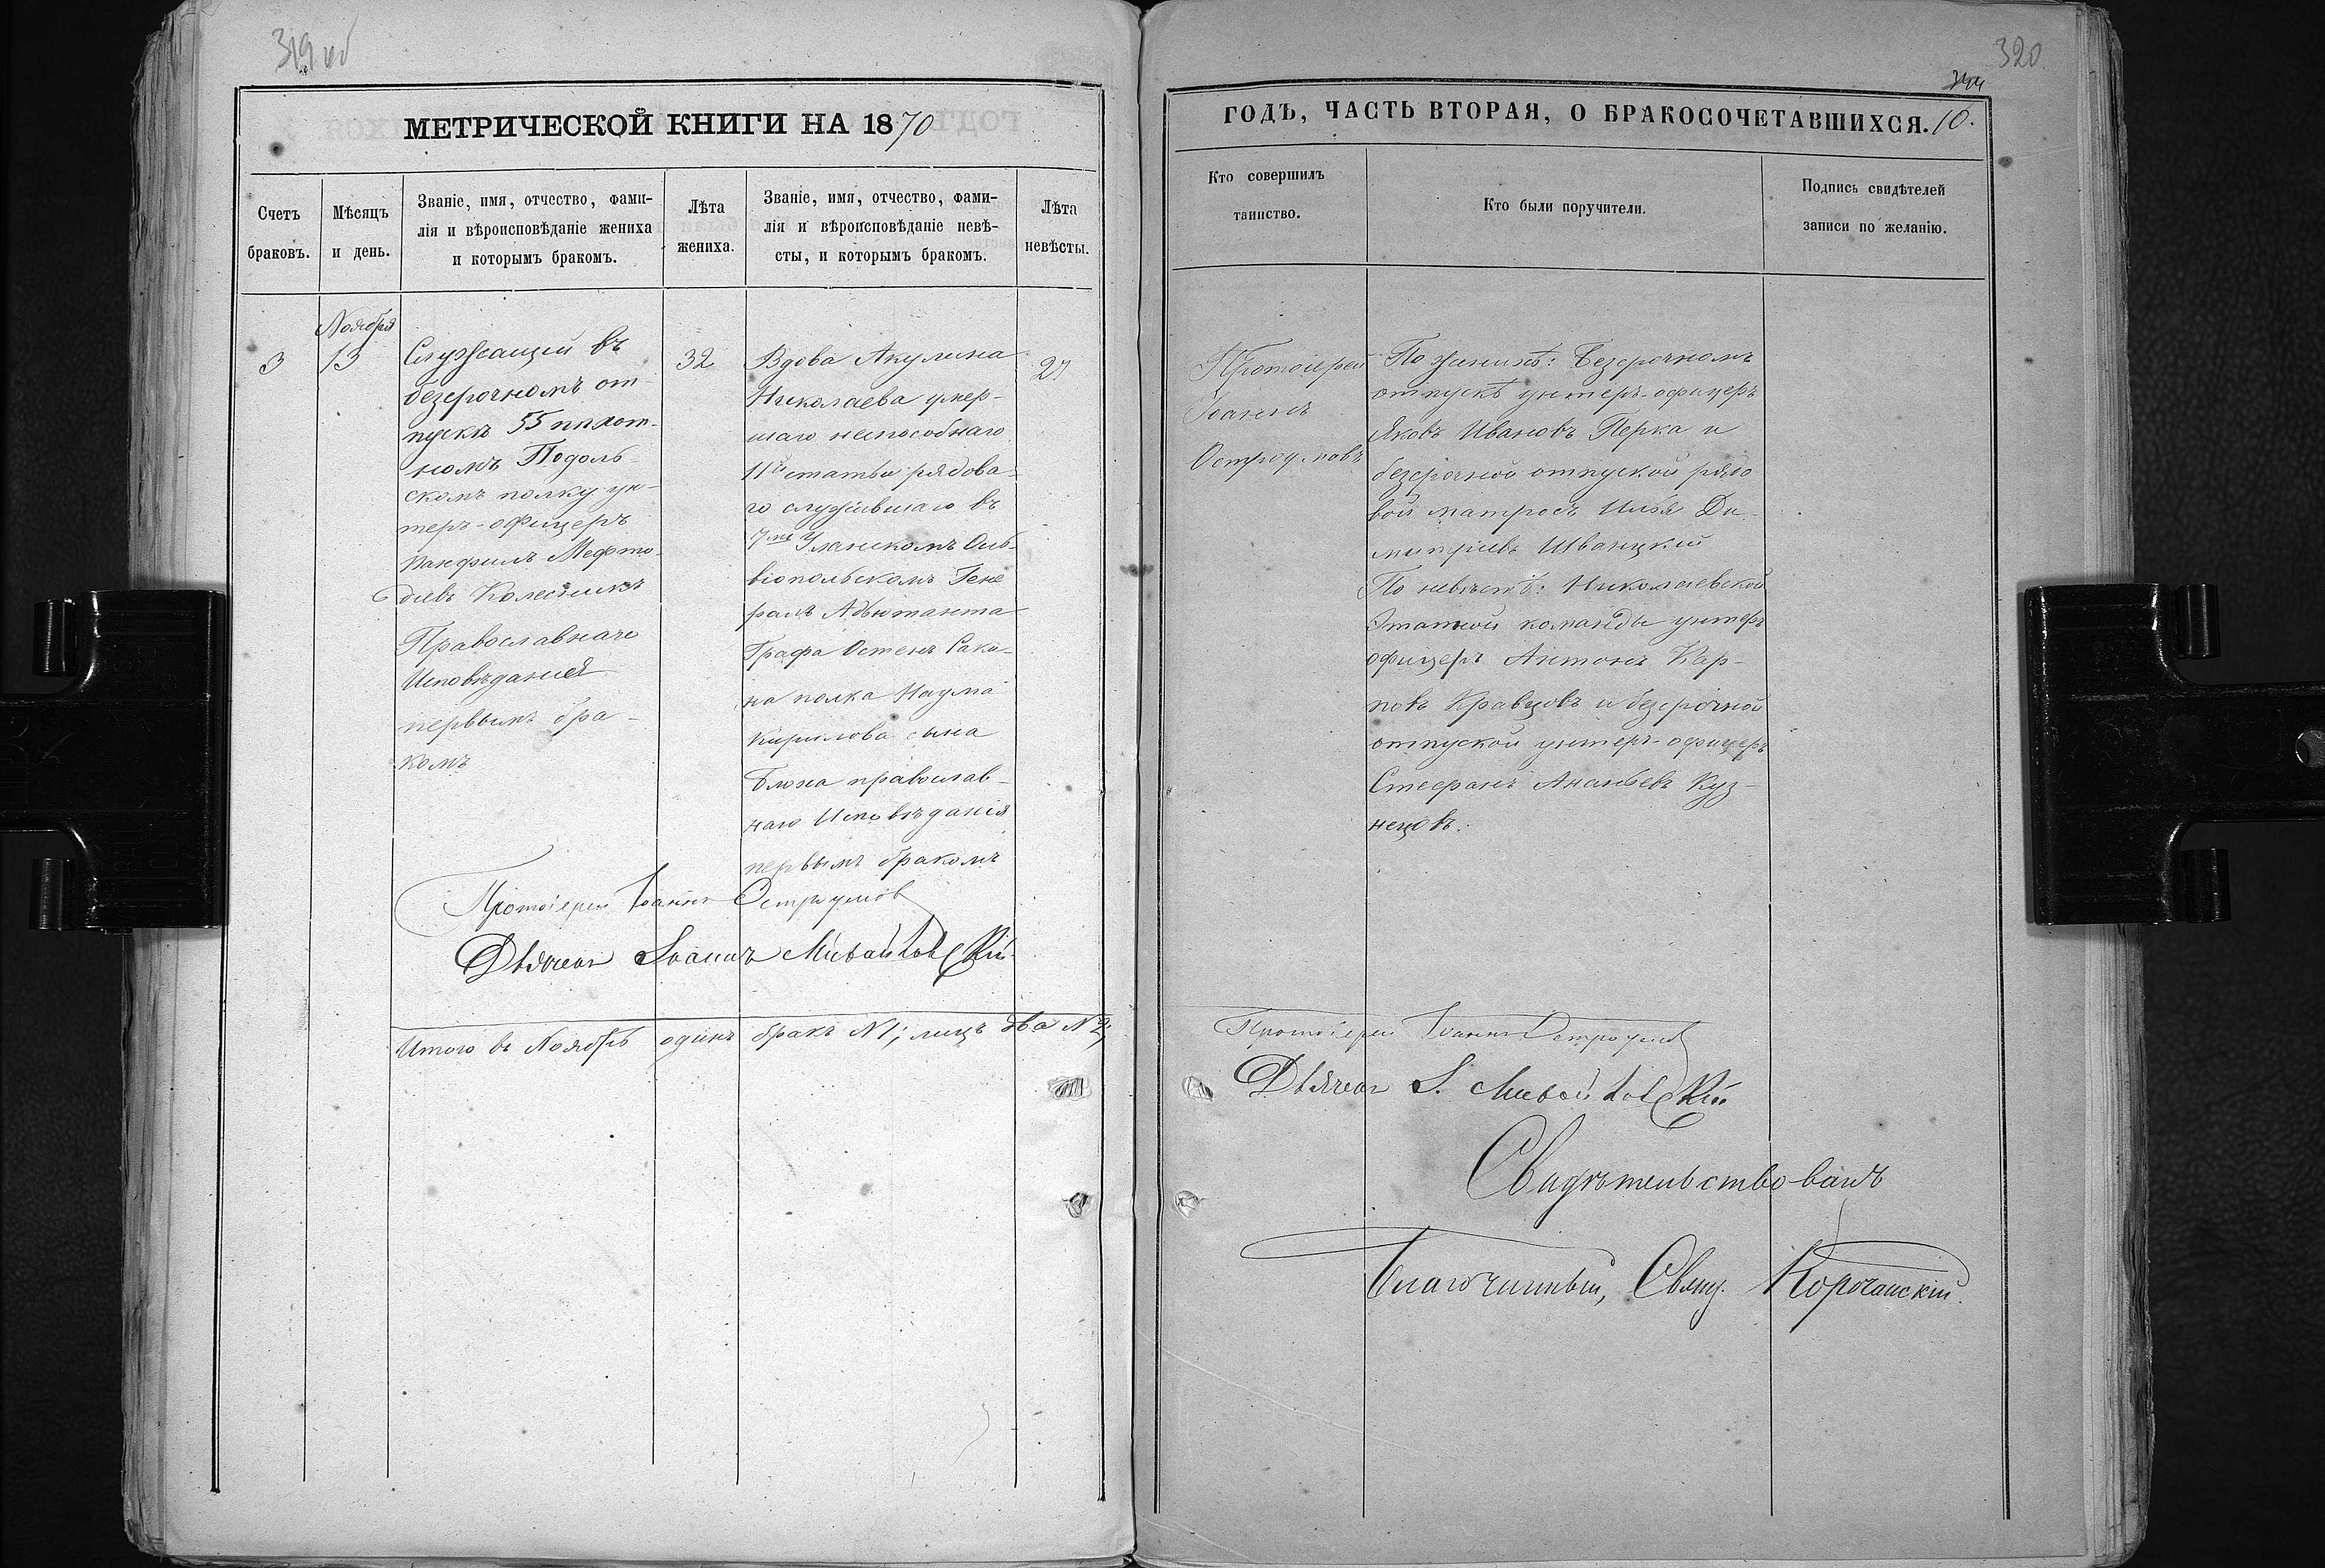 319 об
МЕТРИЧЕСКОЙ КНИГИ НА 1870
Счетъ
браковъ.
Мѣсяцъ
и день.
Званіе, имя, отчество, фами-
лія и вѣроисповѣданіе жениха
и которымъ бракомъ.
Лѣта
жениха.
Званіе, имя, отчество, фами-
лія и вѣроисповѣданіе невѣ-
сты, и которымъ бракомъ.
Лѣта
невѣсты.
3
Ноября
13
Служащій въ
безсрочномъ от-
пуску 55 пѣхот-
номъ Подоль-
скомъ полку ун-
теръ-офицеръ
Панфилъ Мефто-
діевъ Колесникъ
Православнаго
Исповѣданія
первымъ бра-
комъ
32
Вдова Акулина
Николаева умер-
шаго неспособнаго
11й статьи рядова-
го служившаго въ
7мъ Уланскомъ Оль-
віопольскомъ Гене
ралъ Адъютанта
Графа Остенъ Саке-
на полка Наума
Кирилова сына
Блоха православ-
наго Исповѣданія
первымъ бракомъ
27
Протоіерей Іоаннъ Остроумов
Дьячокъ Іоаннъ
Итого въ Ноябрѣ одинъ бракъ N 1; лицъ два N 2;
320
ГОДЪ, ЧАСТЬ ВТОРАЯ, О БРАКОСОЧЕТАВШИХСЯ. 10.
Кто совершилъ
таинство.
Кто были поручители.
Подпись свидѣтелей
записи по желанію.
Протоіерей
Іоаннъ
Остроумовъ
По женихѣ: Безсрочномъ
отпускѣ унтеръ-офицеръ
Яковъ Ивановъ Перка и
безсрочно отпуской рядо
вой матросъ Илья Ди-
митріевъ Иваницкій
По невѣстѣ: Николаевской
Этапной команды унтеръ
офицеръ Антонъ Кар-
повъ Кравцовъ и безсрочно
отпуской унтеръ-офицеръ
Стефанъ Ананьевъ Куз-
нецовъ.
Протоіерей Іоаннъ Остроумов
Дьячокъ І.
Свидѣтельствовалъ
Благочинный, Свящ. Корочанскій.